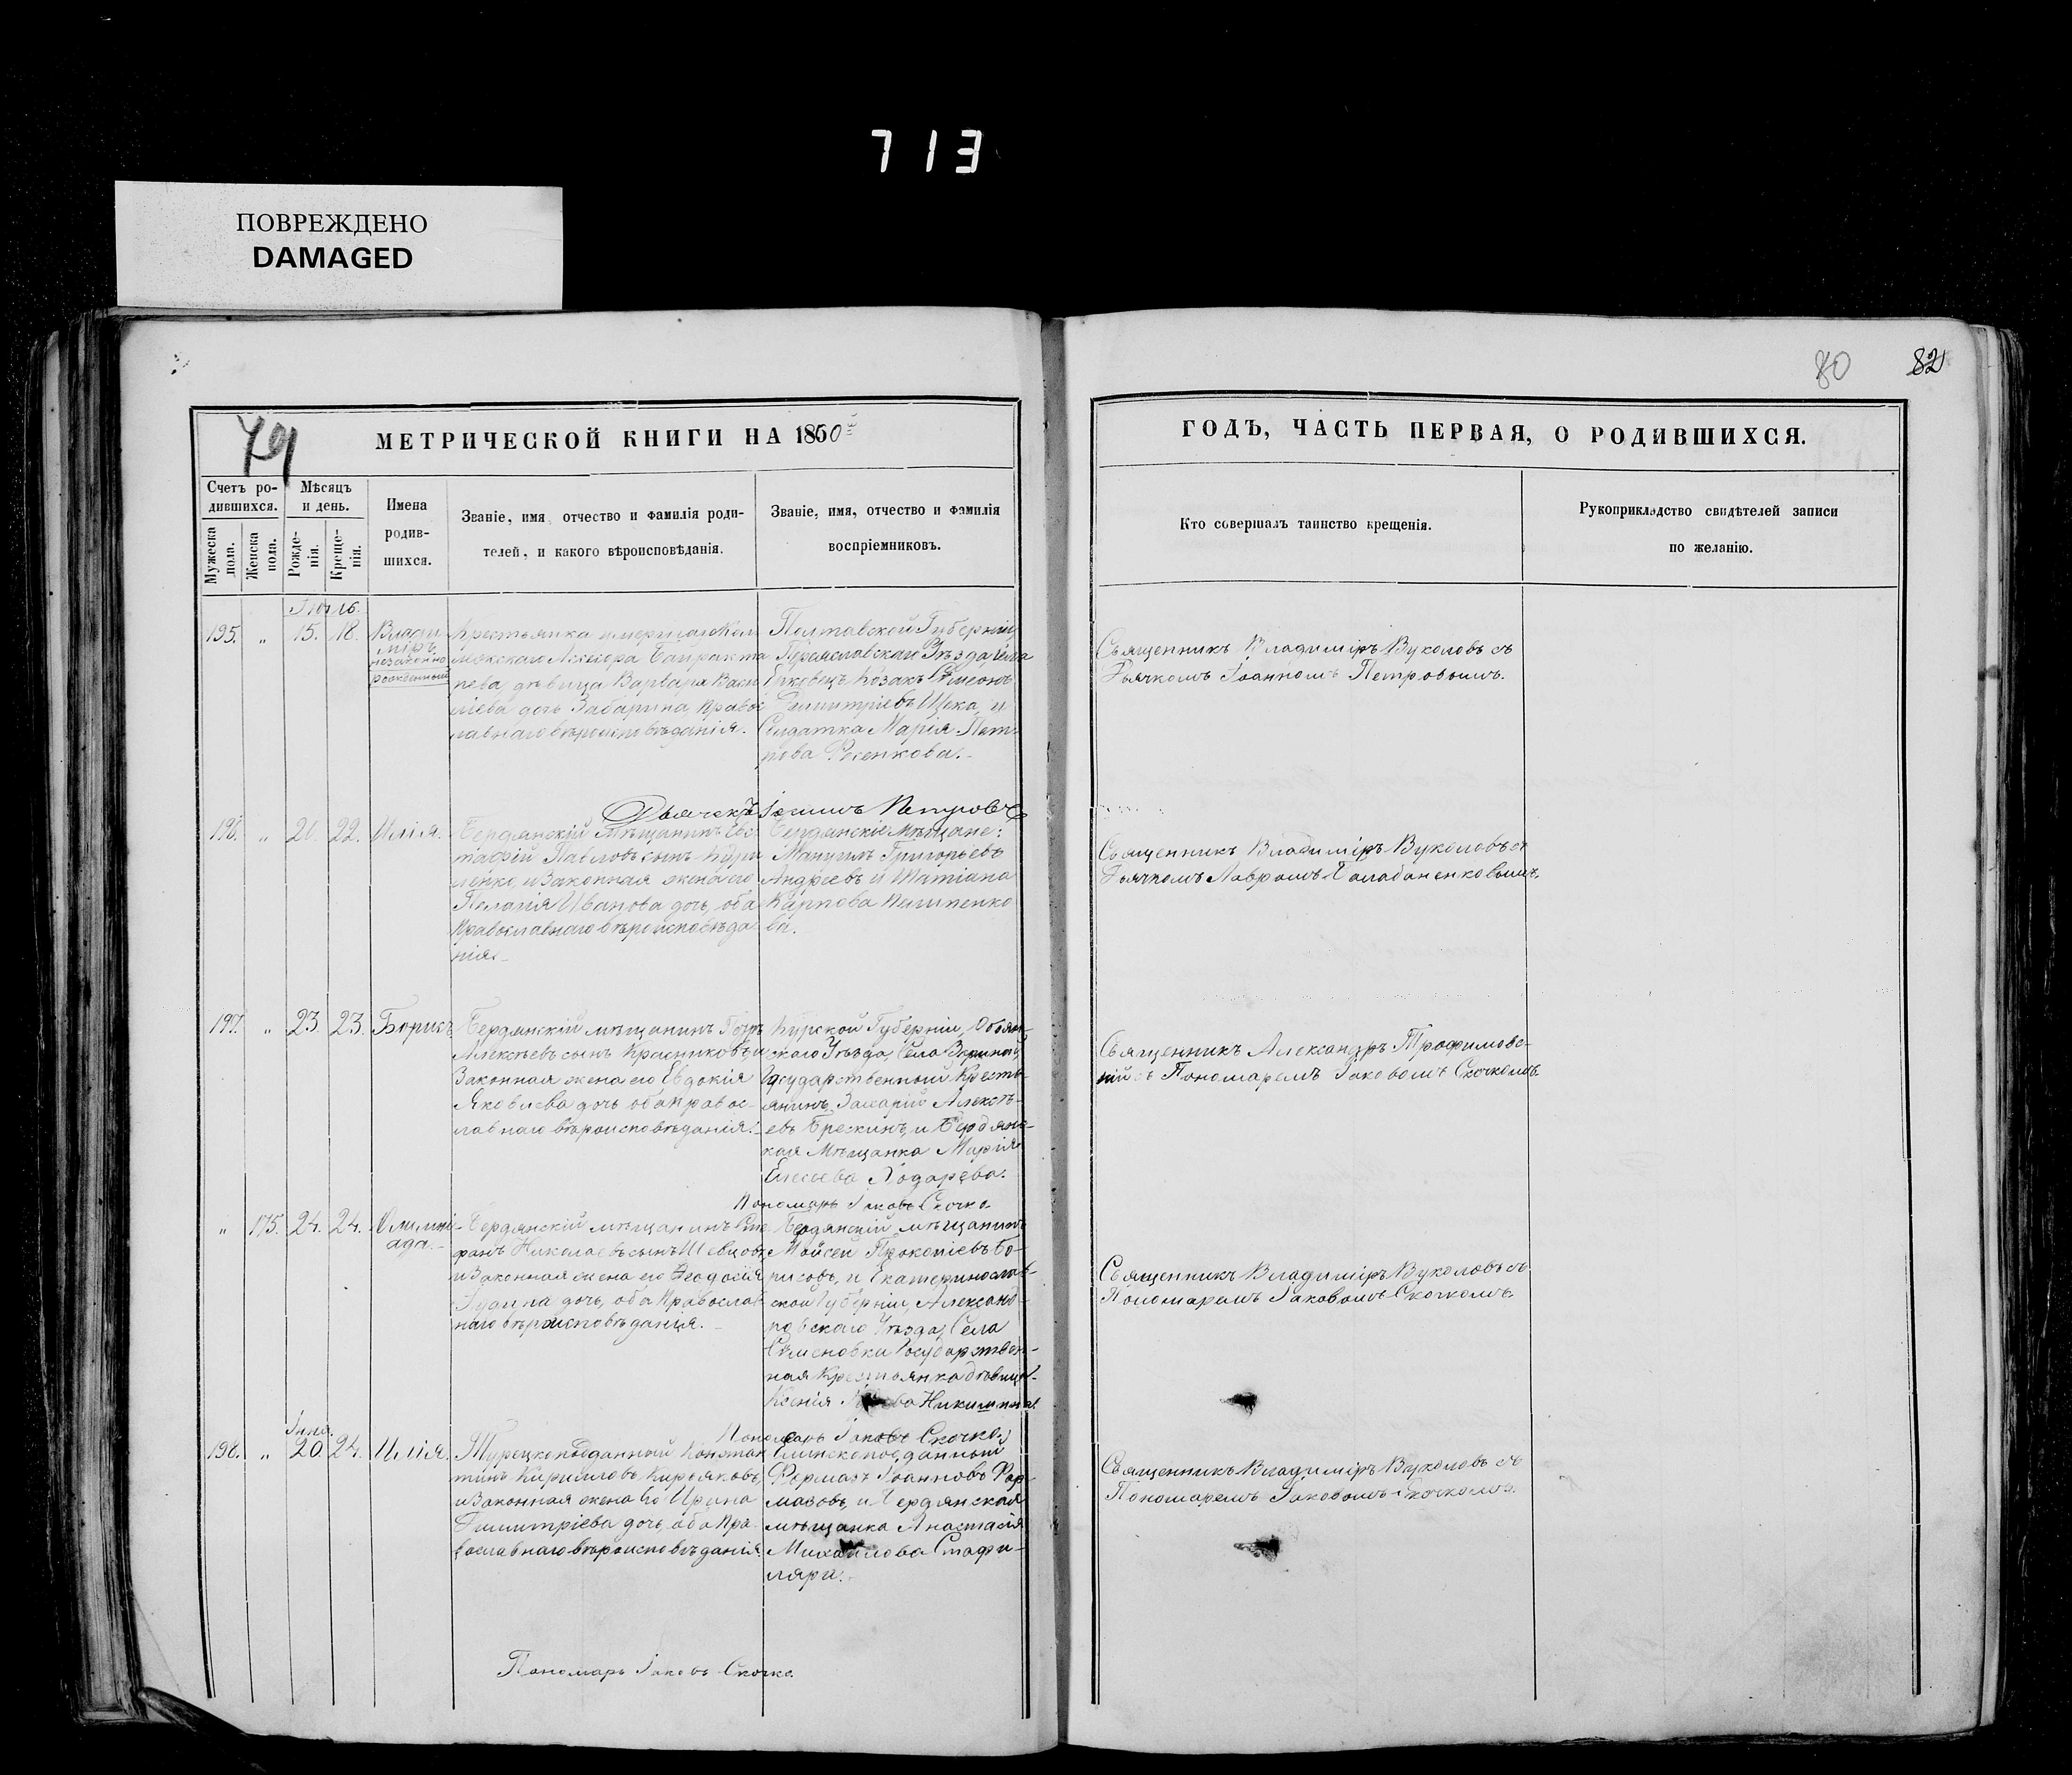 713
ПОВРЕЖДЕНО
DAMAGED
80 82
79
МЕТРИЧЕСКОЙ КНИГИ НА 1860
ГОДЪ, ЧАСТЬ ПЕРВАЯ, О РОДИВШИХСЯ.
Счетъ ро-
дившихся.
Мужеска
пола.
Женска
пола.
Мѣсяцъ
и день.
Рожде-
нія.
Креще-
нія.
Имена
родив-
шихся.
Званіе, имя отчество и фамилія роди-
телей, и какого вѣроисповѣданія.
Званіе, имя, отчество и фамилія
воспріемниковъ.
Кто совершалъ таинство крещенія.
Рукоприкладство свидѣтелей записи
по желанію.
Іюль.
195. " 15. 18.
Влади-
міръ
незаконно
рожденный
Крестьянка
Ассесора Байракта
рева дѣвица Варвара Васи
ліева дочь Забарина правос
лавнаго вѣроисповѣданія.
Полтавской Губерніи,
Переяславскаго Уѣзда села
Ерковецъ Козакъ Симеонъ
Димитріевъ Щека, и
Солдатка Марія Пет-
рова
Священникъ Владиміръ Вуколовъ съ
Дьячкомъ Іоанномъ Петровымъ.
Дьячекъ Іоаннъ Петровъ
196. " 21. 22. Илія.
Бердянскій Мѣщанинъ Евс
тафій Павловъ сынъ Кури
ленко, и Законная жена его
Пелагія Иванова дочь, оба
Православнаго вѣроисповѣда
нія.
Бердянскіе Мѣщане:
Григорьевъ
Андреевъ и Татіана
Карпова Пилипенко
ва.
Священникъ Владиміръ Вуколовъ съ
Дьячкомъ Лавромъ Балабаненковымъ.
197. " 23. 23. Борисъ
Бердянскій мѣщанинъ Петръ
Алексѣевъ сынъ Красниковъ, и
Законная жена его Евдокія
Яковлева дочь оба правос-
лавнаго вѣроисповѣданія.
Курской Губерніи, Обоян-
скаго Уѣзда, Села
Государственный Кресть-
янинъ, Захарій Алексѣ-
евъ Брескинъ, и Бердянс-
кая Мѣщанка Марія
Елисѣева
Священникъ Александръ Трофимовс-
кій съ Пономаремъ Іаковомъ Скочкомъ.
Пономарь Іаковъ Скочко
" 175. 24. 24.
Олимпі-
ада.
Бердянскій мѣщанинъ Сте
фанъ Николаевъ сынъ Шевцовъ
и Законная жена его Ѳеодосія
дочь, оба Православ
наго вѣроисповѣданія.
Бердянскій мѣщанинъ
Мойсей Прокопіевъ Бо-
рисовъ, и Екатеринослав-
ской Губерніи, Александ-
ровскаго Уѣзда, Села
Семеновки Государствен-
ная Крестьянка дѣвица
Ксенія
Священникъ Владиміръ Вуколовъ съ
Пономаремъ Іаковомъ Скочкомъ.
Пономарь Іаковъ Скочко
198. " 20 24. Илія.
Турецкоподданный Констан
тинъ Кирилловъ Кирьяковъ,
и Законная жена Его Ирина
Димитріева дочь, оба Пра-
вославнаго вѣроисповѣданія.
Еллинскоподданный
Іоанновъ
и Бердянская
мѣщанка Анастасія
Михайлова Стафи-
ляри.
Священникъ Владиміръ Вуколовъ съ
Пономаремъ Іаковомъ Скочкомъ.
Пономарь Іаковъ Скочко.